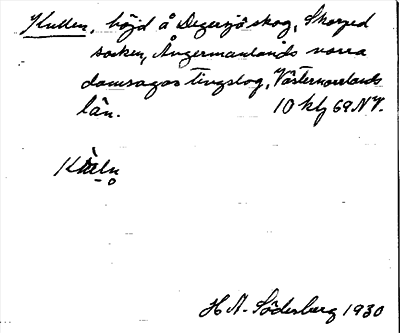 Kullen, höjd å Degersjö skog, Skorped
socken, Ångermanlands norra
domsagas tingslag, Västernorrlands
län. 10 kly 69 NV.
H A. Söderberg 1930